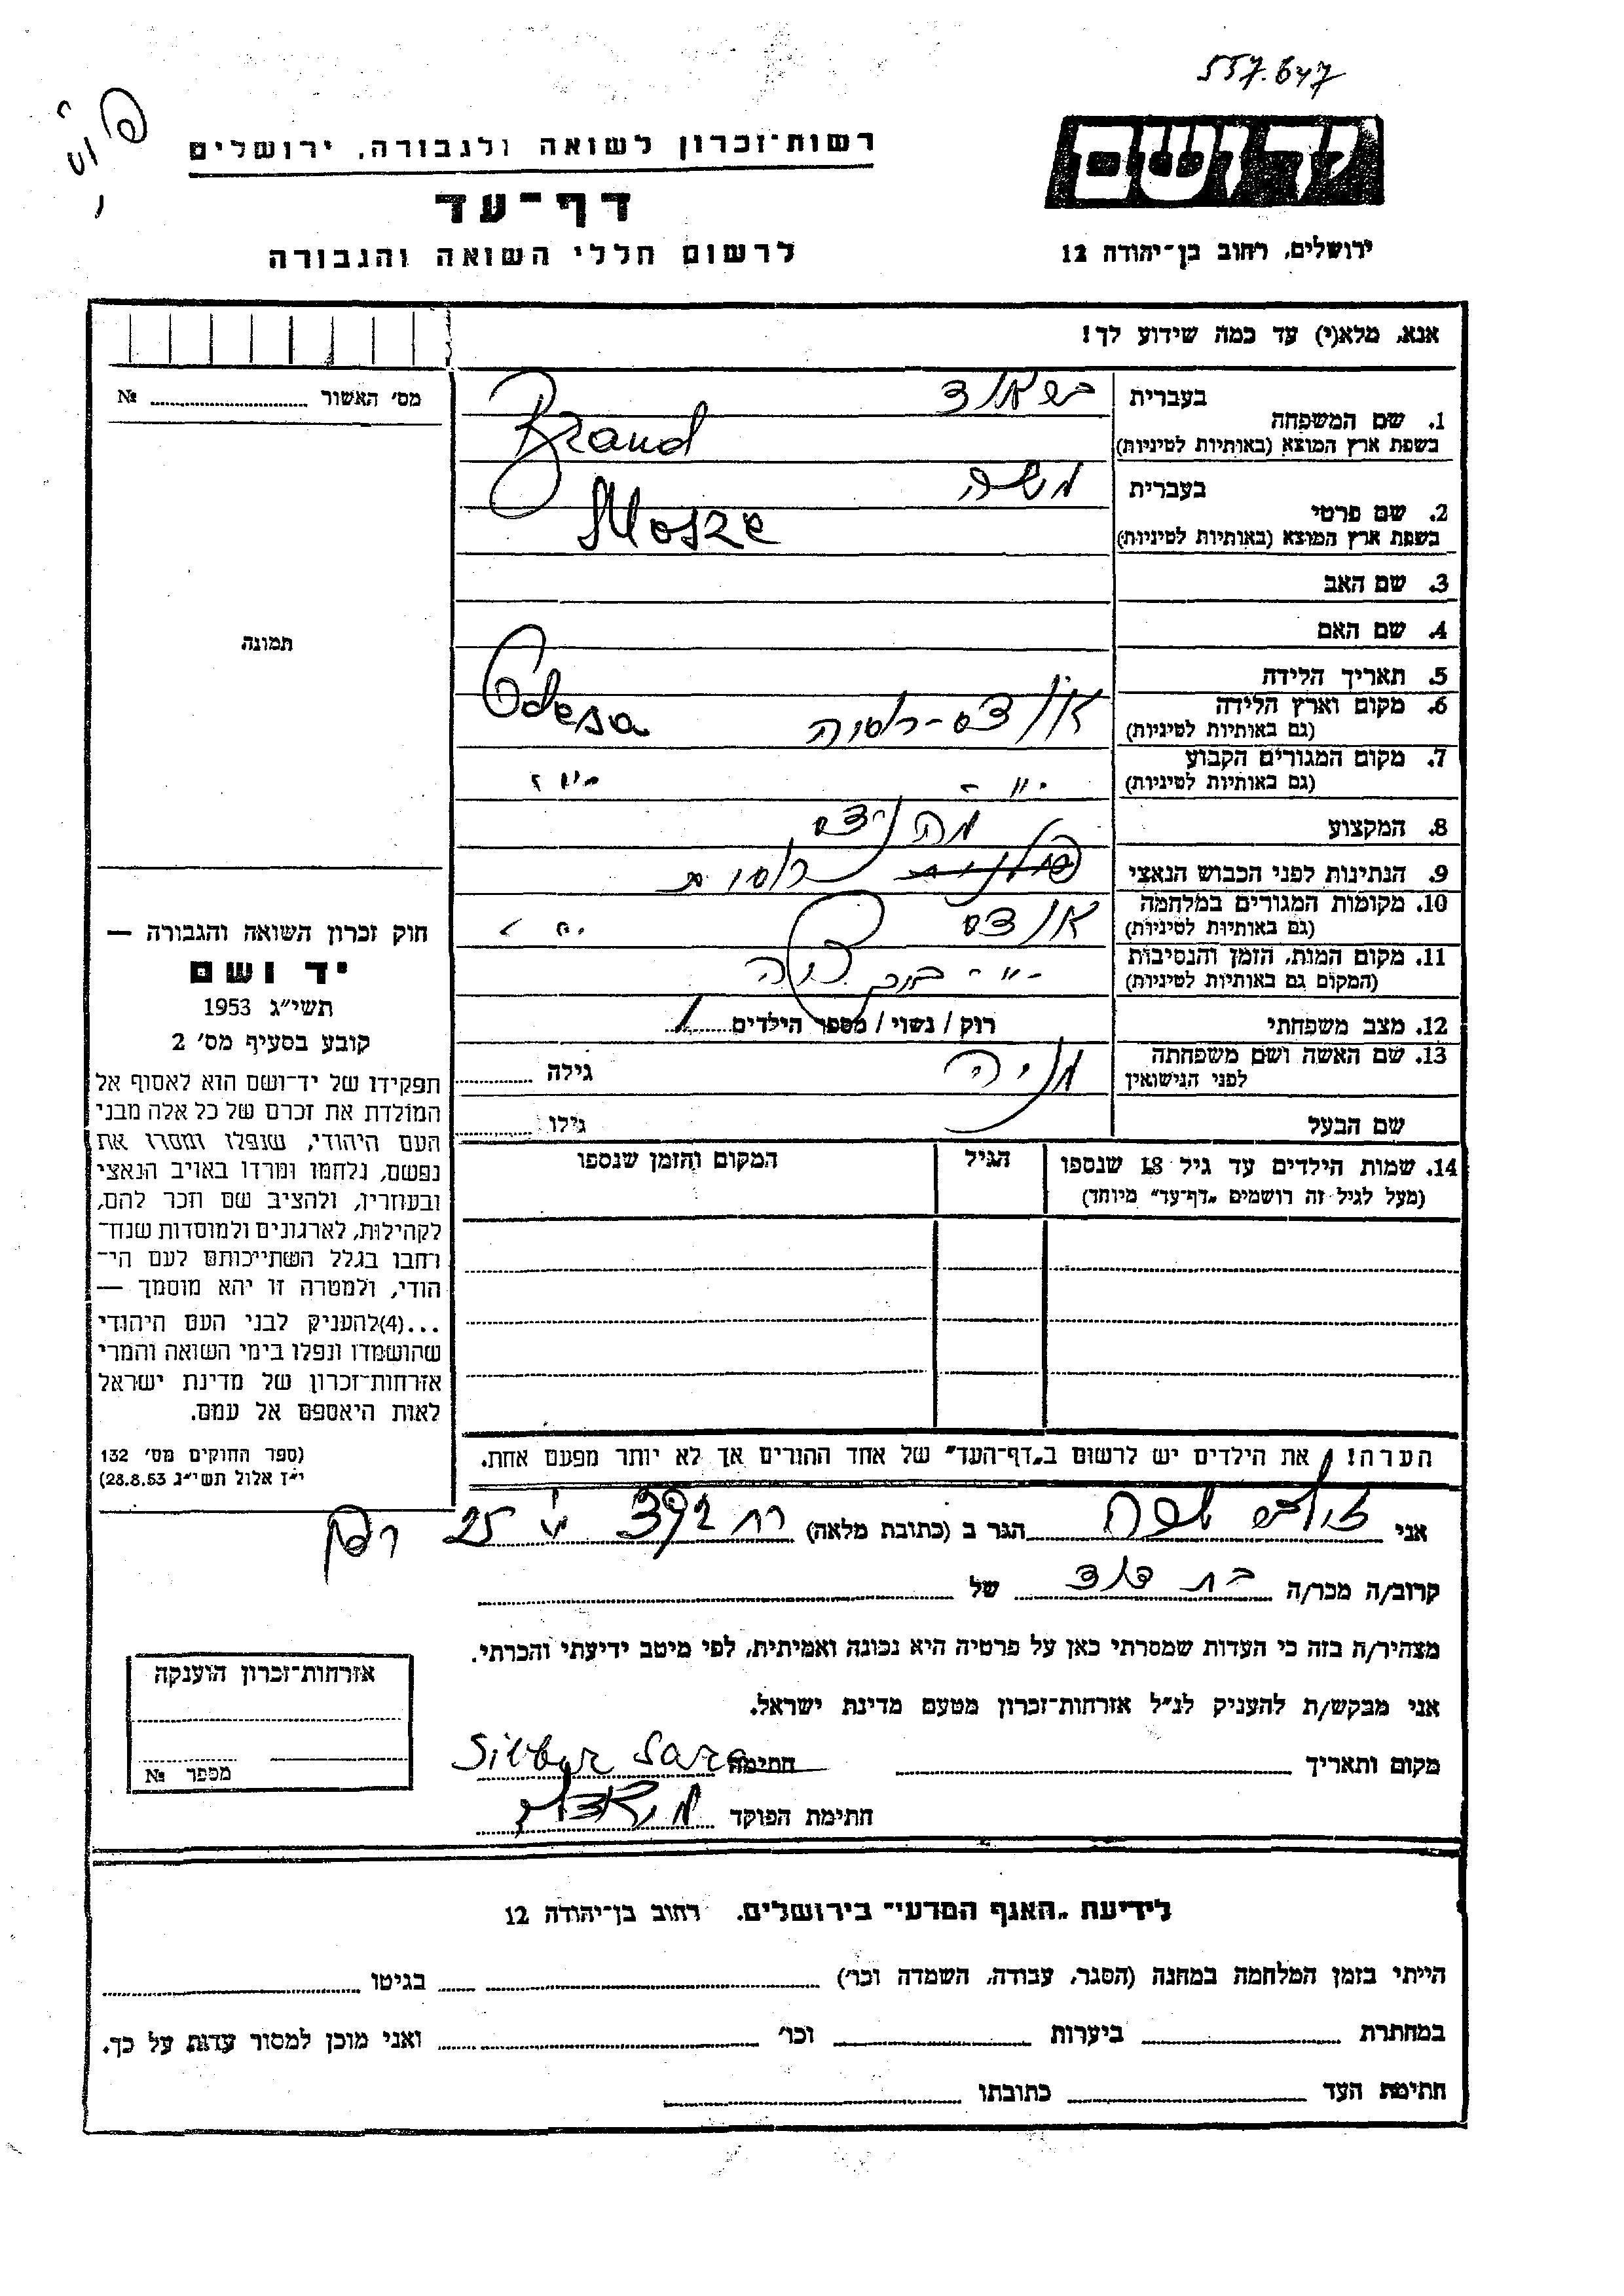 557.647
יד ושם
רשות־זכרון לשואה ולגבורה, ירושלים
דף־עד
לרשום חללי השואה והגבורה
ירושלים, רחוב בן־יהודה 12
אנא, מלא(י) עד כמה שידוע לך!
מס׳ האשור № ....................
תמונה
בעברית
1. שם המשפחה
בשפת ארץ המוצא (באותיות לטיניות) Brand
בעברית משה
2. שם פרטי
בשפת ארץ המוצא (באותיות לטיניות) Mosze
3. שם האב
4. שם האם
5. תאריך הלידה
6. מקום וארץ הלידה
(גם באותיות לטיניות) אודס-רוסיה Odesa
7. מקום המגורים הקבוע
(גם באותיות לטיניות) -"- -"-
8. המקצוע
9. הנתינות לפני הכבוש הנאצי רוסית
10. מקומות המגורים במלחמה
(גם באותיות לטיניות) אודס
11. מקום המות, הזמן והנסיבות
(המקום גם באותיות לטיניות) -"-
12. מצב משפחתי רוק / נשוי / מספר הילדים 1
13. שם האשה ושם משפחתה
לפני הנישואין מניה גילה
שם הבעל גילו
14. שמות הילדים עד גיל 18 שנספו
(מעל לגיל זה רושמים „דף־עד״ מיוחד)
הגיל
המקום והזמן שנספו
הערה! את הילדים יש לרשום ב„דף־העד״ של אחד ההורים אך לא יותר מפעם אחת.
חוק זכרון השואה והגבורה —
יד ושם
תשי״ג 1953
קובע בסעיף מס׳ 2
תפקידו של יד־ושם הוא לאסוף אל
המולדת את זכרם של כל אלה מבני
העם היהודי, שנפלו ומסרו את
נפשם, נלחמו ומרדו באויב הנאצי
ובעוזריו, ולהציב שם וזכר להם,
לקהילות, לארגונים ולמוסדות שנח־
רבו בגלל השתייכותם לעם הי־
הודי, ולמטרה זו יהא מוסמך —
...(4)להעניק לבני העם היהודי
שהושמדו ונפלו בימי השואה והמרי
אזרחות־זכרון של מדינת ישראל
לאות היאספם אל עמם.
(ספר החוקים מס׳ 132
י״ז אלול תשי״ג 28.8.53)
אני שרה הגר ב (כתובת מלאה) רח 25
קרוב/ה מכר/ה בת דוד של
מצהיר/ה בזה כי העדות שמסרתי כאן על פרטיה היא נכונה ואמיתית, לפי מיטב ידיעתי והכרתי.
אני מבקש/ת להעניק לנ״ל אזרחות־זכרון מטעם מדינת ישראל.
מקום ותאריך חתימה Silber Sara
חתימת הפוקד
אזרחות־זכרון הוענקה
מספר №
לידיעת „האגף המדעי״ בירושלים, רחוב בן־יהודה 12
הייתי בזמן המלחמה במחנה (הסגר, עבודה, השמדה וכו׳) בגיטו
במחתרת ביערות וכו׳ ואני מוכן למסור עדות על כך.
חתימת העד כתובתו